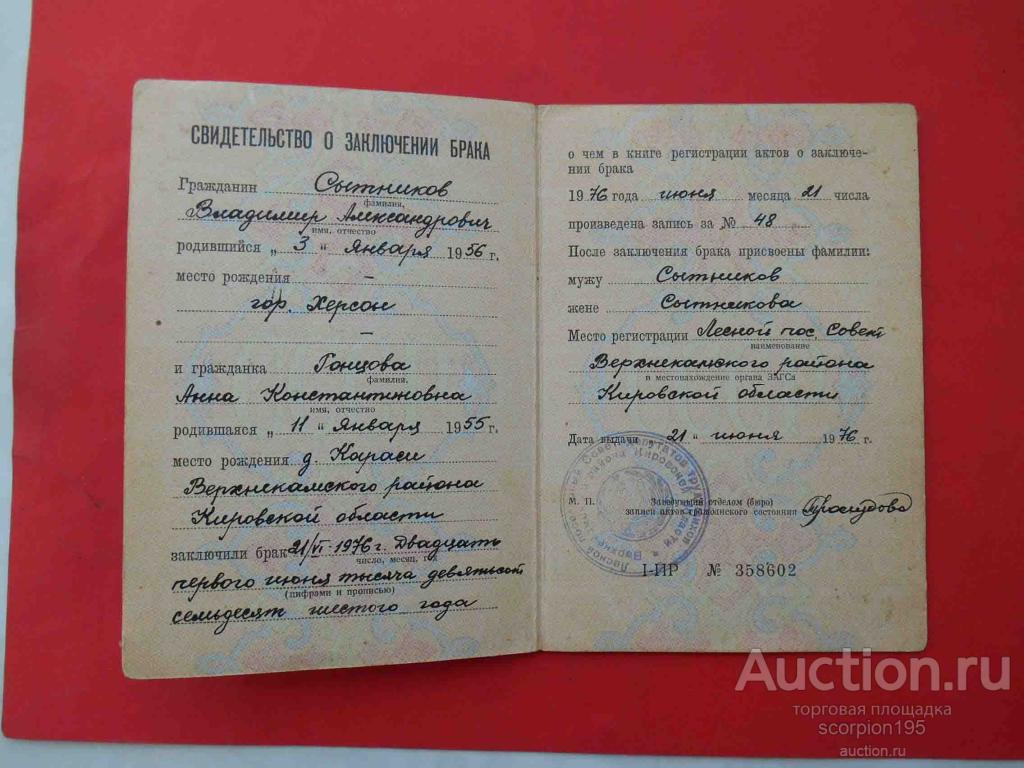 СВИДЕТЕЛЬСТВО О ЗАКЛЮЧЕНИИ БРАКА
Гражданин Сытников
фамилия,
Владимир Александрович
имя, отчество
родившийся „ 3 “ января 1956 г.
место рождения –
гор. Херсон
–
и гражданка Гонцова
фамилия,
Анна Константиновна
имя, отчество
родившаяся „ 11 “ января 1955 г.
место рождения д. Караси
Верхнекамского района
Кировской области
заключили брак 21/VI-1976 г. Двадцать
число, месяц, год
первого июня тысяча девятьсот
(цифрами и прописью)
семьдесят шестого года
о чем в книге регистрации актов о заключе-
нии брака
1976 года июня месяца 21 числа
произведена запись за № 48
После заключения брака присвоены фамилии:
мужу Сытников
жене Сытникова
Место регистрации Лесной пос. Совет
наименование
Верхнекамского района
и местонахождение органа ЗАГСа
Кировской области
Дата выдачи 21 “ июня 1976 г.
М. П.
Заведующий отделом (бюро)
записи актов гражданского состояния
I-ИР № 358602
Auction.ru
торговая площадка
scorpion195
auction.ru